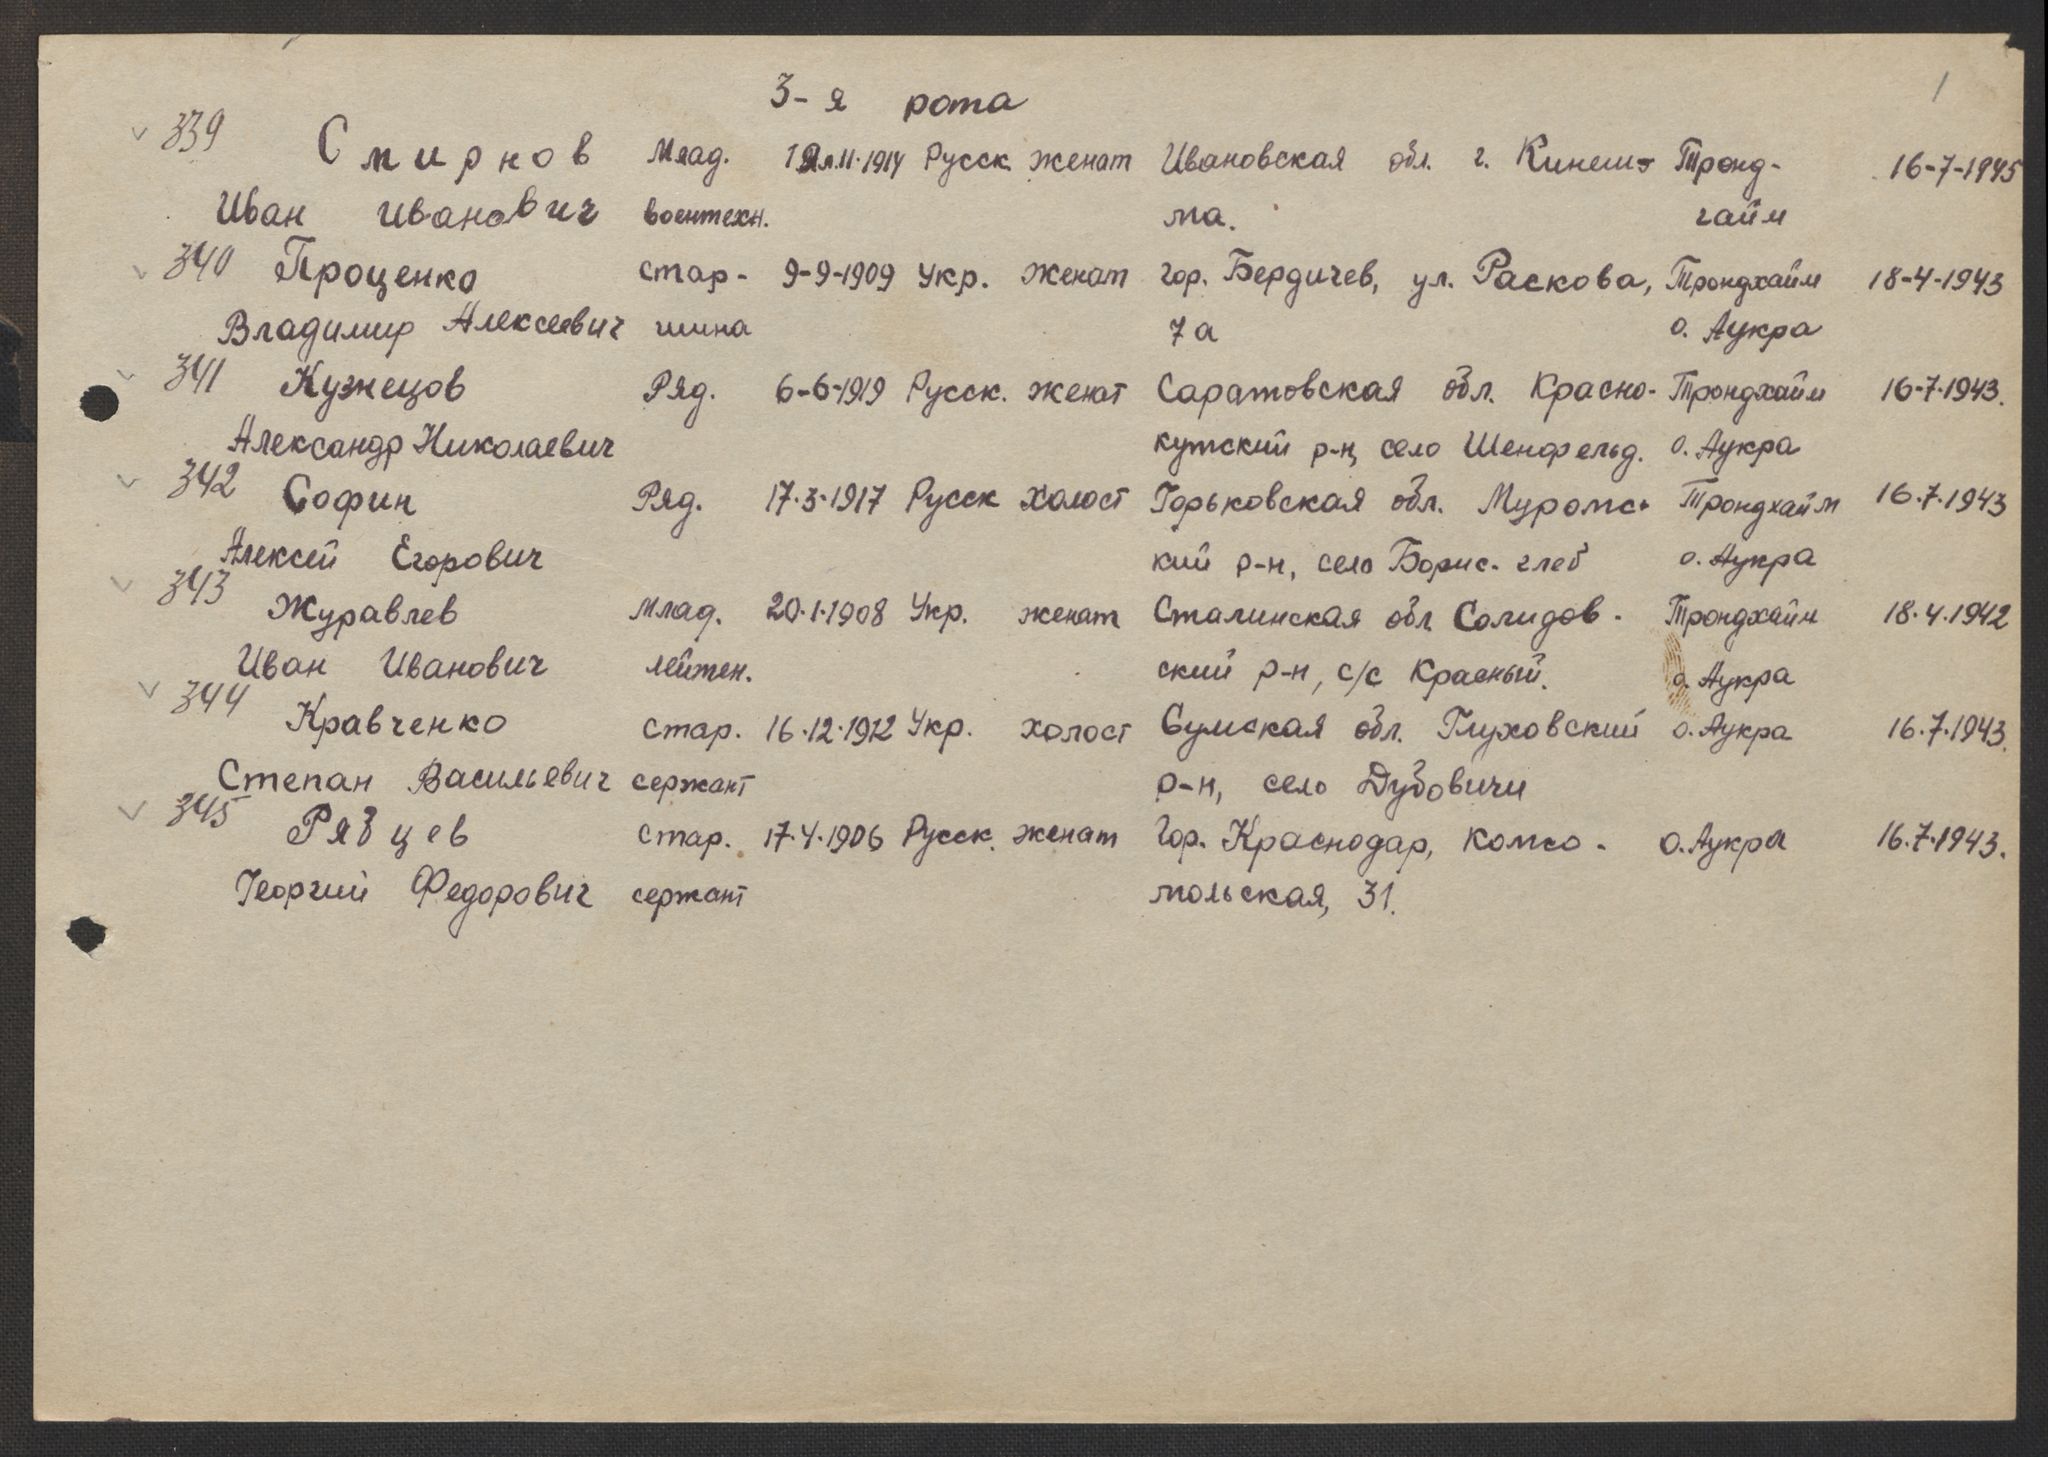 1
3-я рота
339 Смирнов Млад. 11.1914 Русск женат Ивановская обл. г. Кинеш- Тронд- 16-7-1945
Иван Иванович воентехн. ма. гайм
340 Проценко стар- 9-9-1909 Укр. женат Гор. Бердичев, ул. Раскова, Трондхайм 18-4-1943
Владимир Алексеевич шина 7а о. Аукра
341 Кузнецов Ряд. 6-6-1919 Русск. женат Саратовская обл. Красно- Трондхайм 16-7-1943.
Александр Николаевич кутский р-н, село Шенфельд. о. Аукра
342 Софин Ряд. 17.3.1917 Русск холост Горьковская обл. Муромс- Трондхайм 16.7.1943
Алексей Егорович кий р-н, село Борис-глеб о. Аукра
343 Журавлев млад. 20.1.1908 Укр. женат Сталинская обл Солидов- Трондхайм 18.4.1942
Иван Иванович лейтен. ский р-н, с/с Красный. о. Аукра
344 Кравченко стар. 16.12.1912 Укр. холост Сумская обл. Глуховский о. Аукра 16.7.1943.
Степан Васильевич сержант р-н, село Дубовичи
345 Рябцев стар. 17.4.1906 Русск. женат Гор. Краснодар, Комсо- о. Аукра 16.7.1943.
Георгий Федорович сержант мольская, 31.